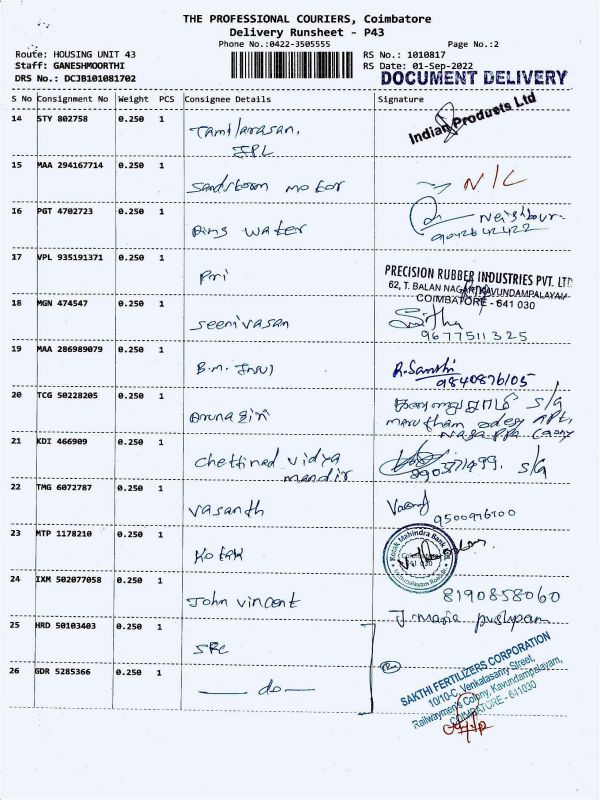 THE PROFESSIONAL COURIERS, Coimbatore
Delivery Runsheet - P43
Phone No.:0422-3505555
Page No.:2
Route: HOUSING UNIT 43
RS No.: 1010817
Staff: GANESHMOORTHI
RS Date: 01-Sep-2022
DRS No.: DCJB101081702
DOCUMENT DELIVERY
S No Consignment No Weight PCS Consignee Details Signature
14 STY 802758 0.250 1 Tamilarasan,
IPL
Indian Products Ltd
15 MAA 294167714 0.250 1 Sandstorm motor N/C
16 PGT 4702723 0.250 1 Ains water Neighbour.
9042642422
17 VPL 935191371 0.250 1 Pri
PRECISION RUBBER INDUSTRIES PVT. LTD
62, T. BALAN NAGAR, KAVUNDAMPALAYAM
COIMBATORE - 641 030
18 MGN 474547 0.250 1 Seenivasan
9677511325
19 MAA 286989079 0.250 1 B.M. R.Santhi
9840876105
20 TCG 50228205 0.250 1 Arunagiri S/g
21 KDI 466909 0.250 1 Chettinad vidya
mandir
8903771499. S/g
22 TMG 6072787 0.250 1 Vasanth
9500976100
23 MTP 1178210 0.250 1 Kotak
Kotak Mahindra Bank
641 030
24 IXM 502077058 0.250 1 John vincent 8190858060
J. maria pushpam
25 HRD 50103403 0.250 1 SFC
26 GDR 5285366 0.250 1 — do —
SAKTHI FERTILIZERS CORPORATION
10/10-C, Venkatasamy Street,
Railwaymen's Colony, Kavundampalayam,
COIMBATORE - 641030